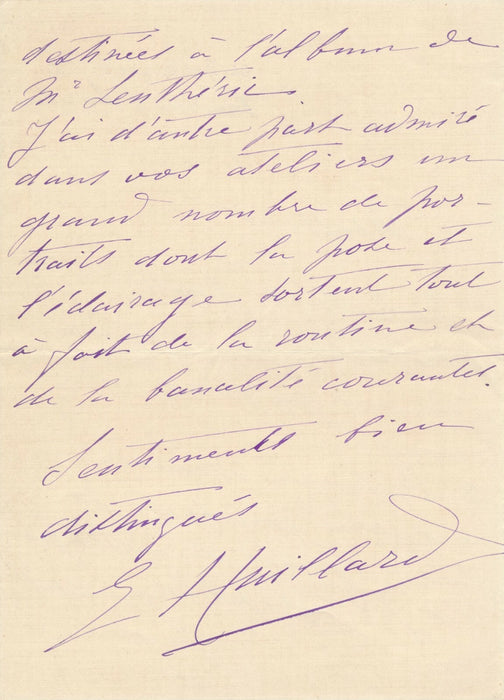 destinées à l'album de
Mr Lenthéric
J'ai d'autre part admiré
dans vos ateliers un
grand nombre de por-
traits dont la pose et
l'éclairage sortent tout
à fait de la routine et
de la banalité courantes.
Sentiments bien
distingués
E Huillard